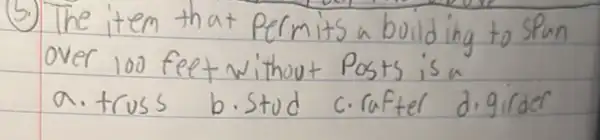 5. The item that permits a building to span
over 100 feet without Posts is a
a. truss b. stud c. rafter d. girder